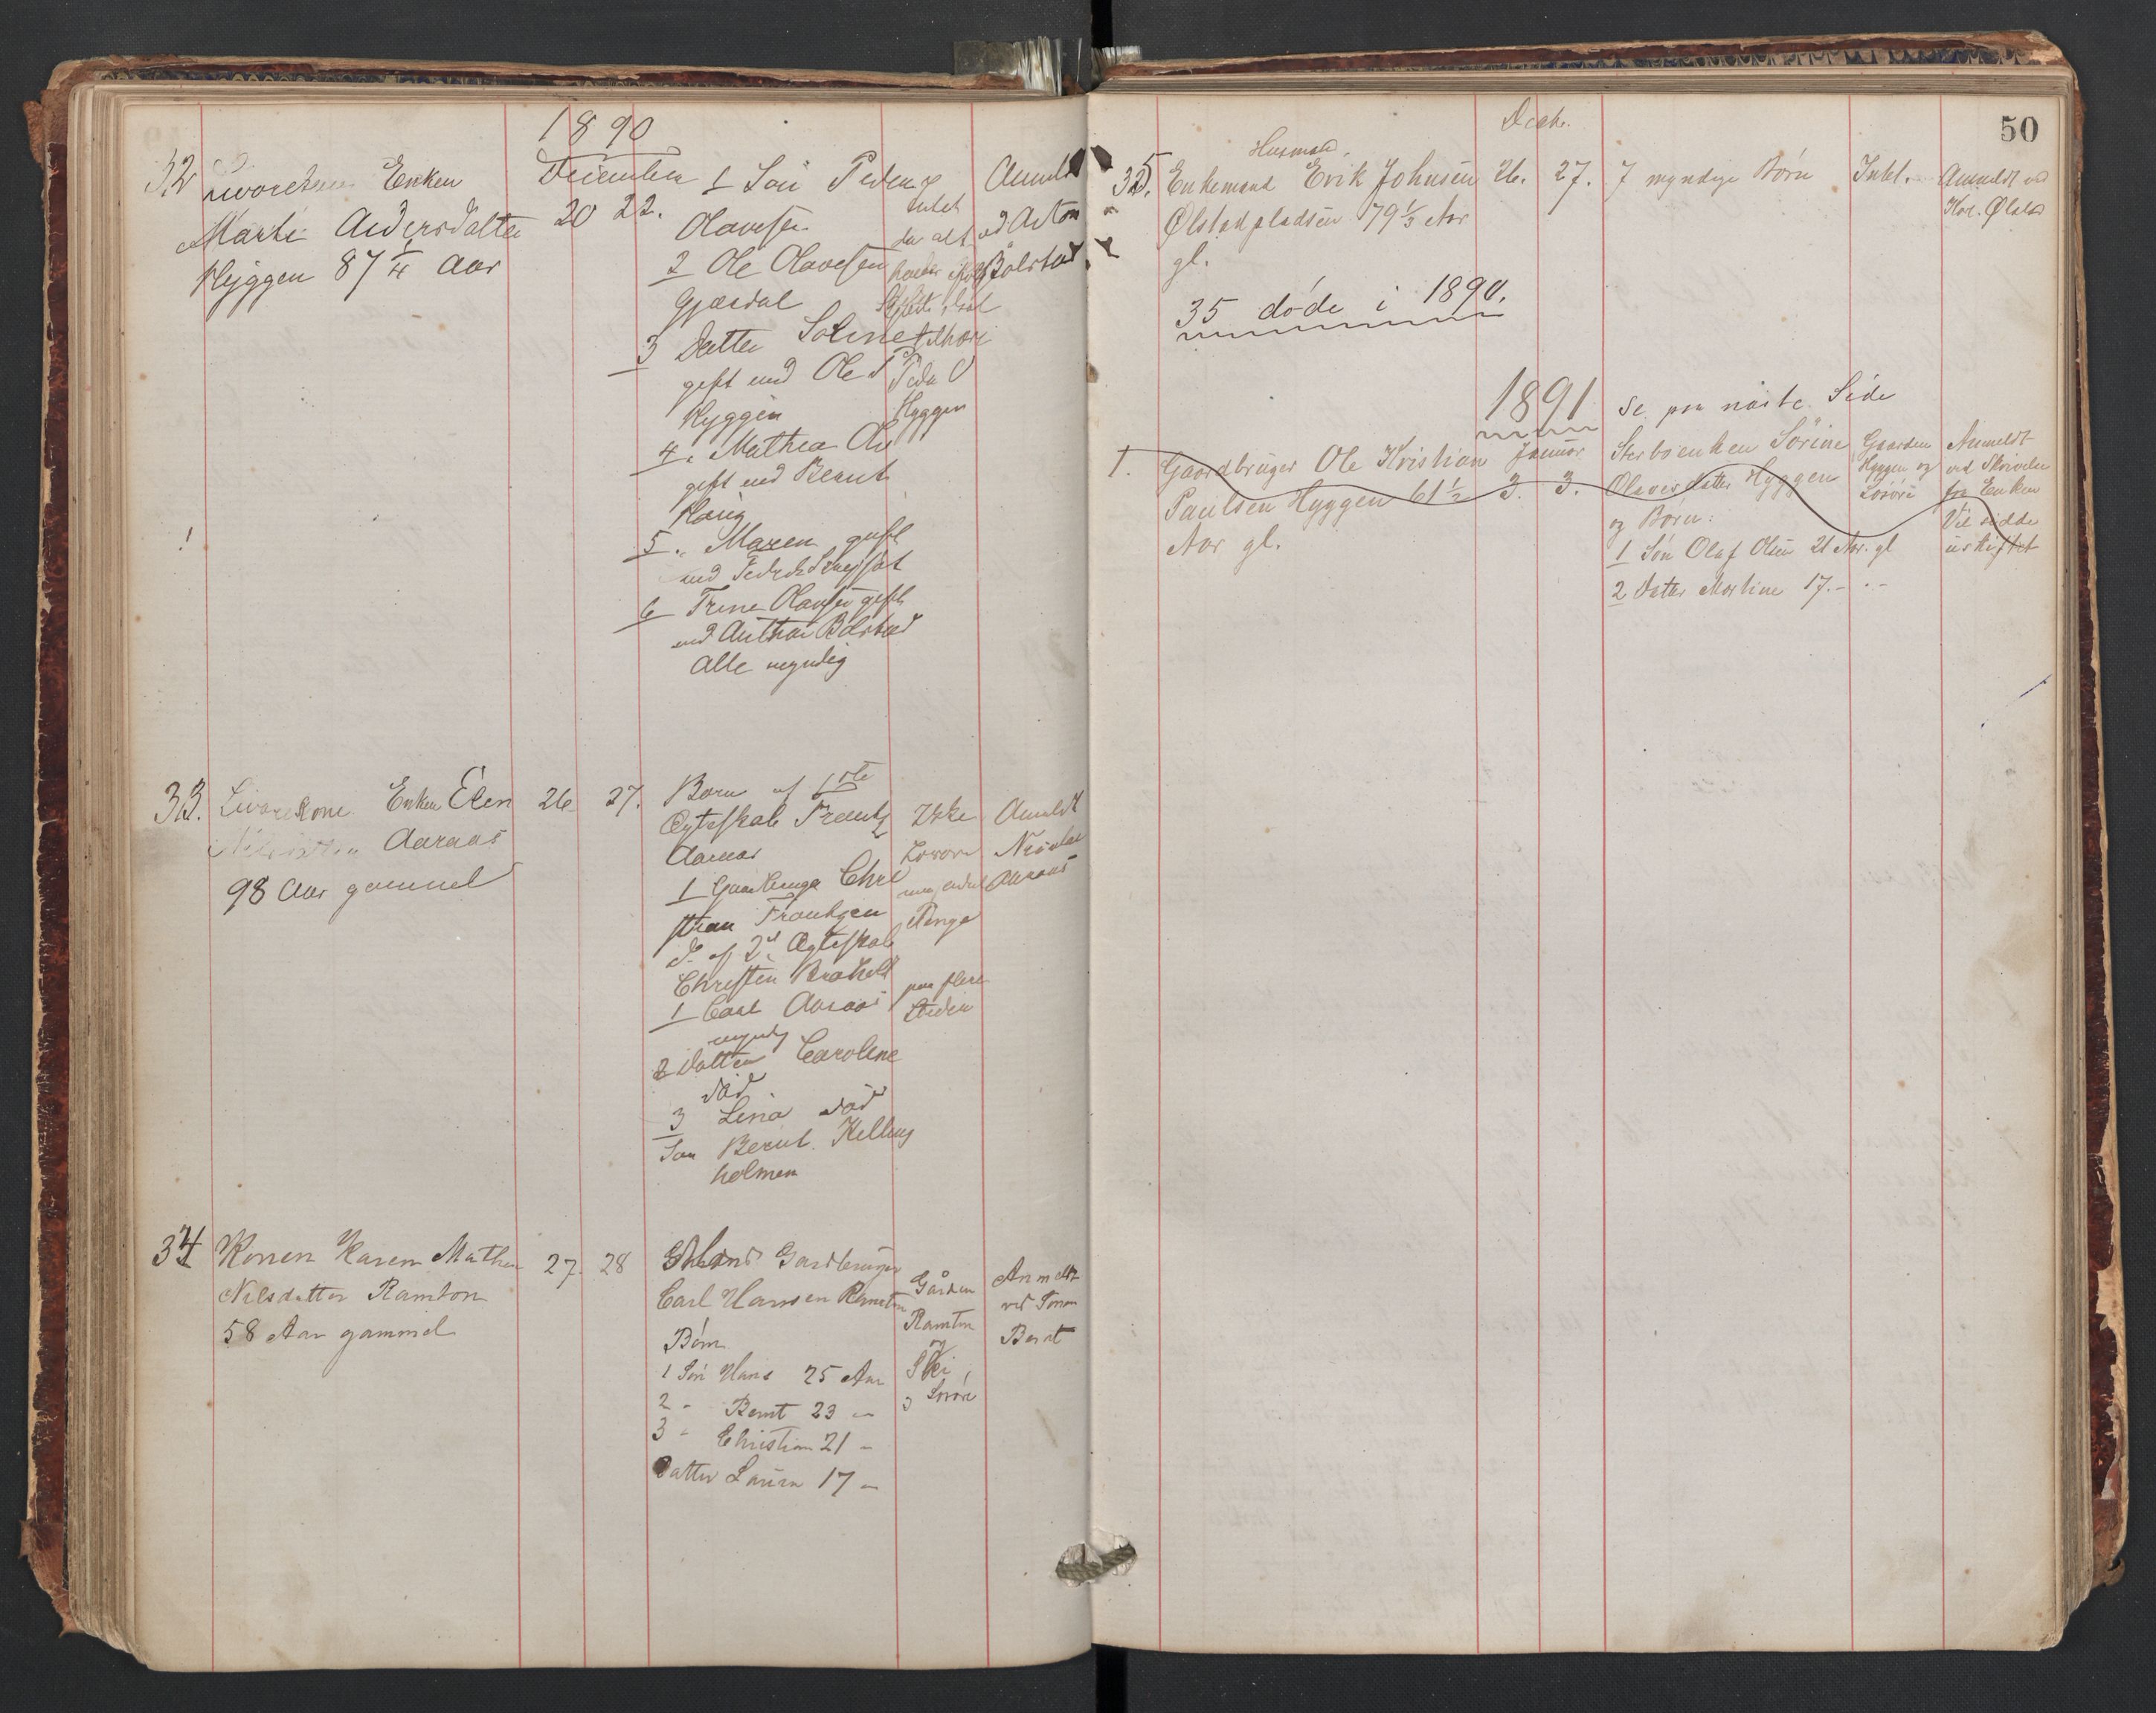 1890
32
Enken
December
1 Søn Peder
Intet
Anmeldt
Marthe Andersdatter
20 22.
Olavesen
da alt
Hyggen 87 1/4 Aar
2 Ole Olavesen
Bolstad
Gjærdal
3 Datter Soline
gift med Ole P
Peder O
Hyggen
Hyggen
4. Mathea
gift med Bernt
Haug
5 " Maren gift
med
6 Trine Olavesen gift
med Anthon Bolstad
Alle myndig
33. Livørekone Enken Elen
26 27.
Børn af 1ste
Nilsdatter Aaraas
Ægteskab Frantz
Ikke
Anmeldt
98 Aar gammel
Aaraas
Løsøre
Nicolai
1 Gaardbruger Chri
men endel
Aaraas
stian Frantzen
Penge
d. af 2det Ægteskab
Christen Braheld
paa flere
1 Carl Aaraas
Steder
myndig
2 Datter Caroline
død
3 Lina død
Søn Bernt Kellings
holmen
34 Konen Karen Mathea
27. 28
Gardbruger
Nilsdatter Ramton
Carl Hansen Ramton
Gården
Anmeldt
58 Aar gammel
Ramton
ved Sønnen
Børn
og
Bernt
1 Søn Hans 25 Aar
2 " Bernt 23 "
Løsøre
3 " Christian 21 "
Datter Laura 17 "
50
Decbr.
Husmand
35. Enkemand Erik Johnsen 26. 27. 7 myndige Børn Intet. Anmeldt ved
Ølstadpladsen 79 1/3 Aar
Kar. Ølstad
gl.
35 døde i 1890.
1891 Se paa næste Side
1. Gaardbruger Ole Kristian Januar Sterboenken Sørine Gaarden Anmeldt
Paulsen Hyggen 61 1/2 3. 3. Olavesdatter Hyggen Hyggen og ved Skrivelse
Aar gl.
og Børn:
Løsøre fra Enken
1 Søn Olaf Olsen 21 Aar. gl
Vil sidde
2 Datter Martine 17. - " -
uskiftet